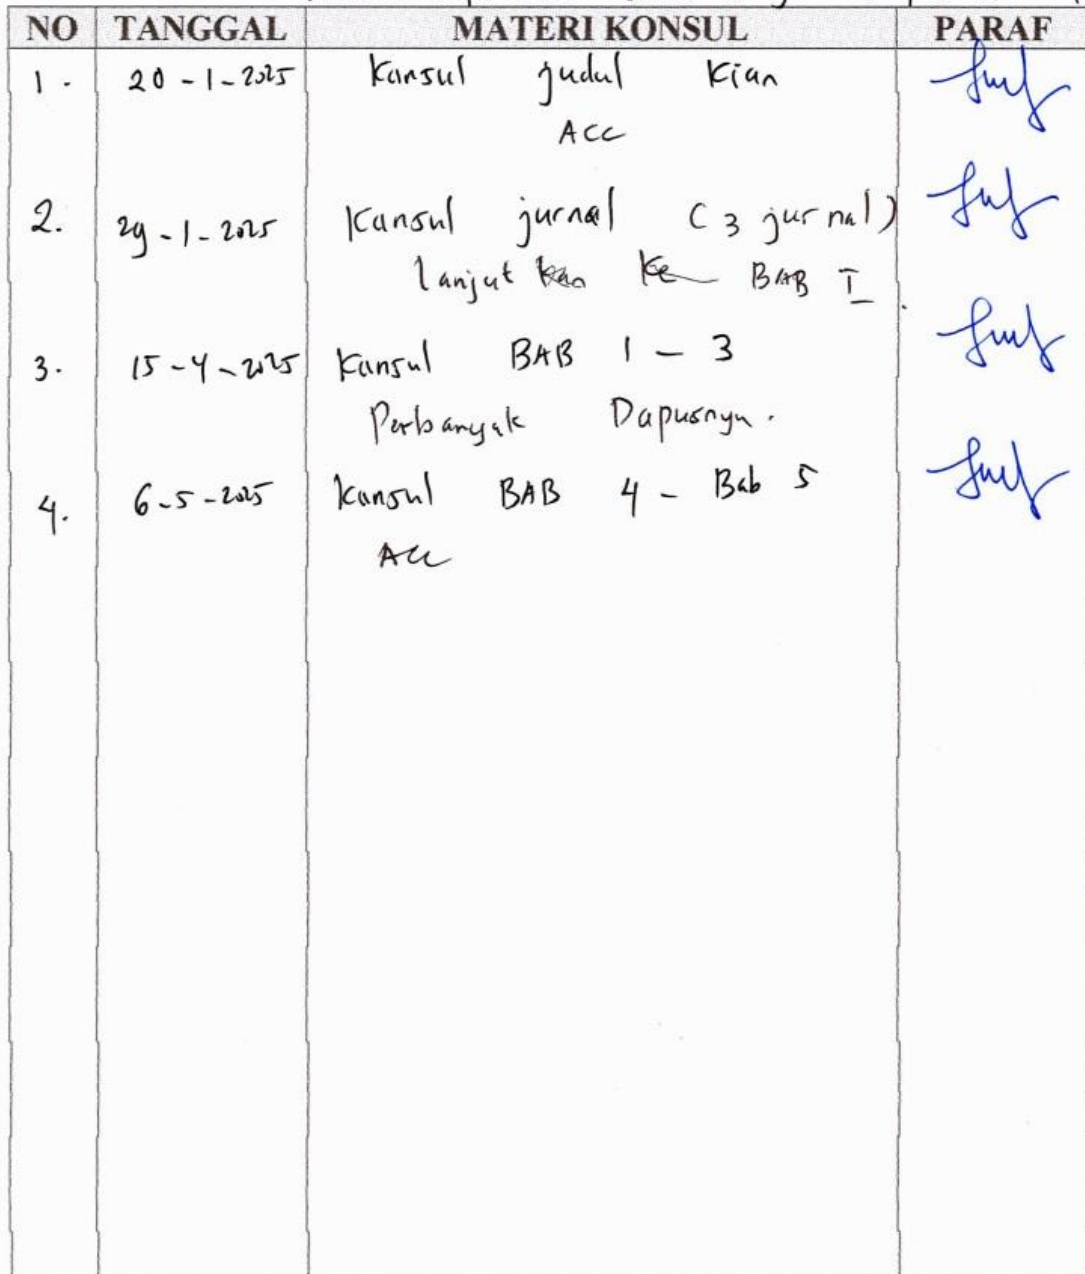 NO TANGGAL MATERI KONSUL PARAF
1. 20-1-2025 Konsul judul Kian
ACC
2. 29-1-2025 Konsul jurnal (3 jurnal)
lanjut ke BAB I.
3. 15-4-2025 Konsul BAB 1-3
Perbanyak Dapusnya.
4. 6-5-2025 Konsul BAB 4 - Bab 5
ACC